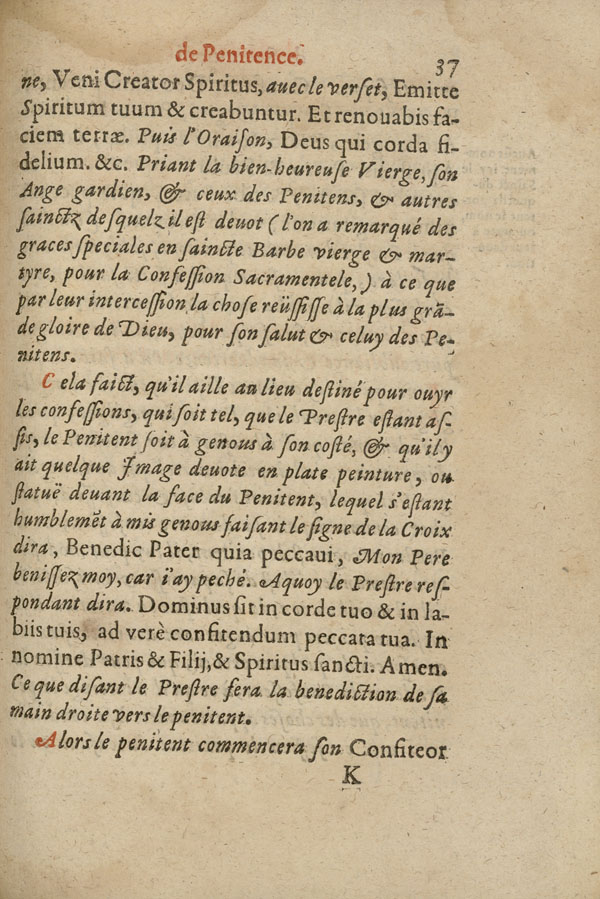 de Penitence. 37
ne, Veni Creator Spiritus, auec le verset, Emitte
Spiritum tuum & creabuntur. Et renouabis fa-
ciem terræ. Puis l'Oraison, Deus qui corda fi-
delium. &c. Priant la bien-heureuse Vierge, son
Ange gardien, & ceux des Penitens, & autres
sainctz desquelz il est deuot (l'on a remarqué des
graces speciales en saincte Barbe vierge & mar-
tyre, pour la Confession Sacramentele,) à ce que
par leur intercession la chose reüssisse à la plus grā-
de gloire de Dieu, pour son salut & celuy des Pe-
nitens.
Cela faict, qu'il aille au lieu destiné pour ouyr
les confessions, qui soit tel, que le Prestre estant as-
sis, le Penitent soit à genous à son costé, & qu'il y
ait quelque Image deuote en plate peinture, ou
statuë deuant la face du Penitent, lequel s'estant
humblemēt à mis genous faisant le signe de la Croix
dira, Benedic Pater quia peccaui, Mon Pere
benissez moy, car i'ay peché. A quoy le Prestre res-
pondant dira. Dominus sit in corde tuo & in la-
biis tuis, ad verè confitendum peccata tua. In
nomine Patris & Filij, & Spiritus sancti. Amen.
Ce que disant le Prestre fera la benediction de sa
main droite vers le penitent.
Alors le penitent commencera son Confiteor
K